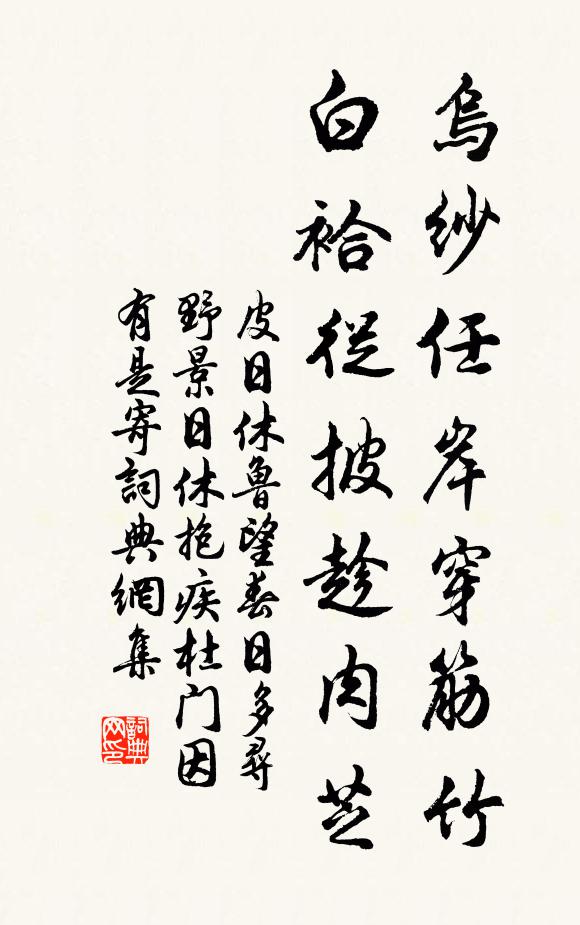 烏紗任岸穿筋竹
白袷從披趁肉芝
皮日休魯望春日多尋
野景日休抱疾杜门因
有是寄詞典網集
詞典
网印